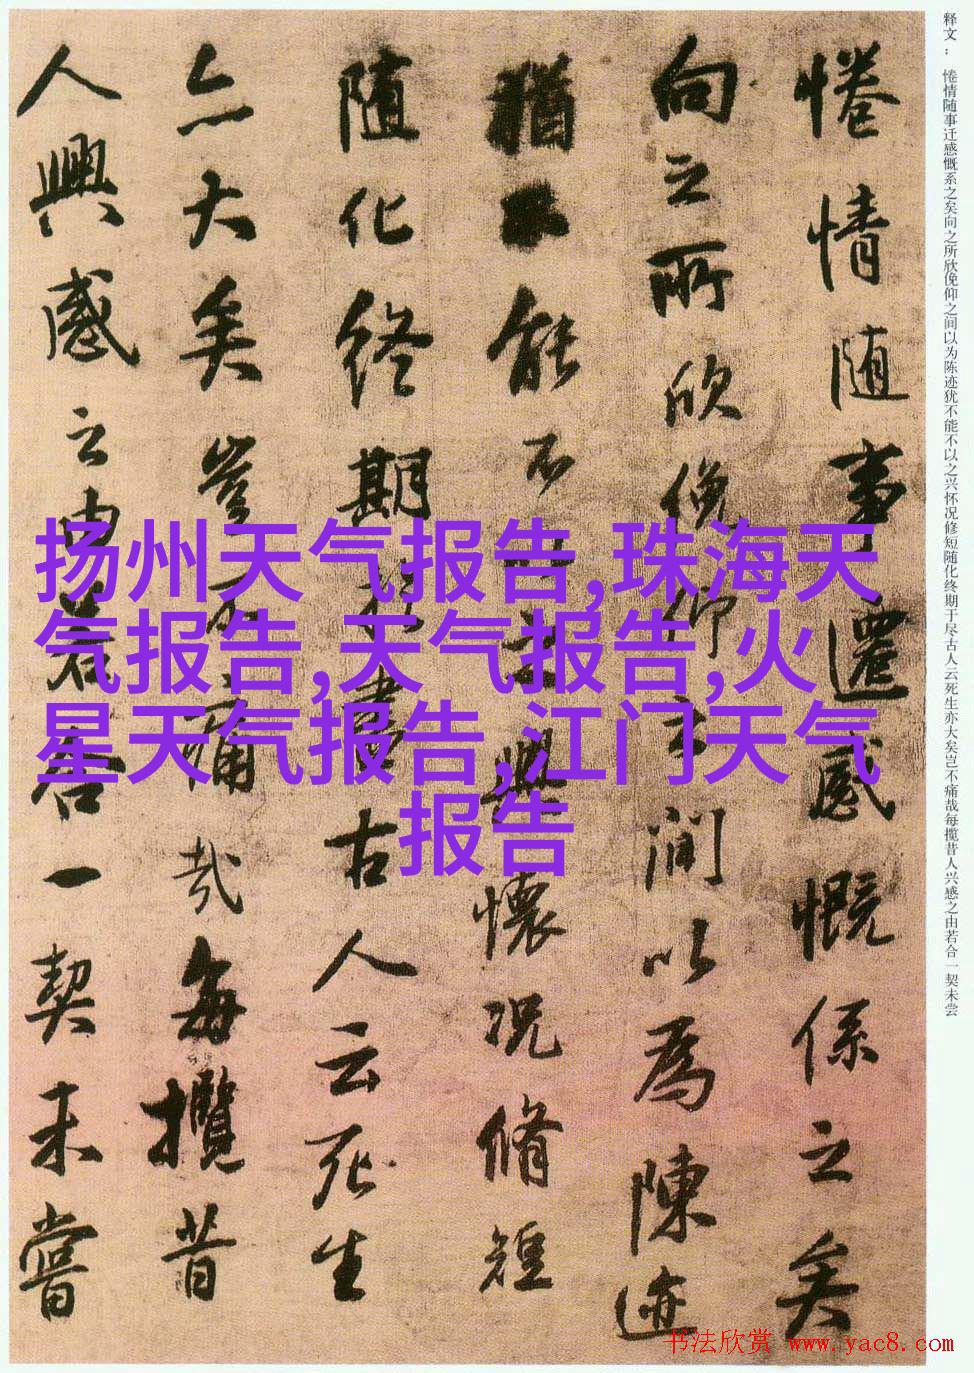 释文： 惓情随事迁感慨系之矣向之所欣俛仰之间以为陈迹犹不能不以之兴怀况修短随化终期于尽古人云死生亦大矣岂不痛哉每揽昔人兴感之由若合一契未尝
惓情随事遷感慨係之矣
向之所欣俛仰之間以為陳迹
猶不能不以之興懷况脩短
随化終期於盡古人云死生
亦大矣豈不痛哉每攬昔
人興感之由若合一契未嘗
扬州天气报告,珠海天
气报告,天气报告,火
星天气报告,江门天气
报告
书法欣赏 www.yac8.com